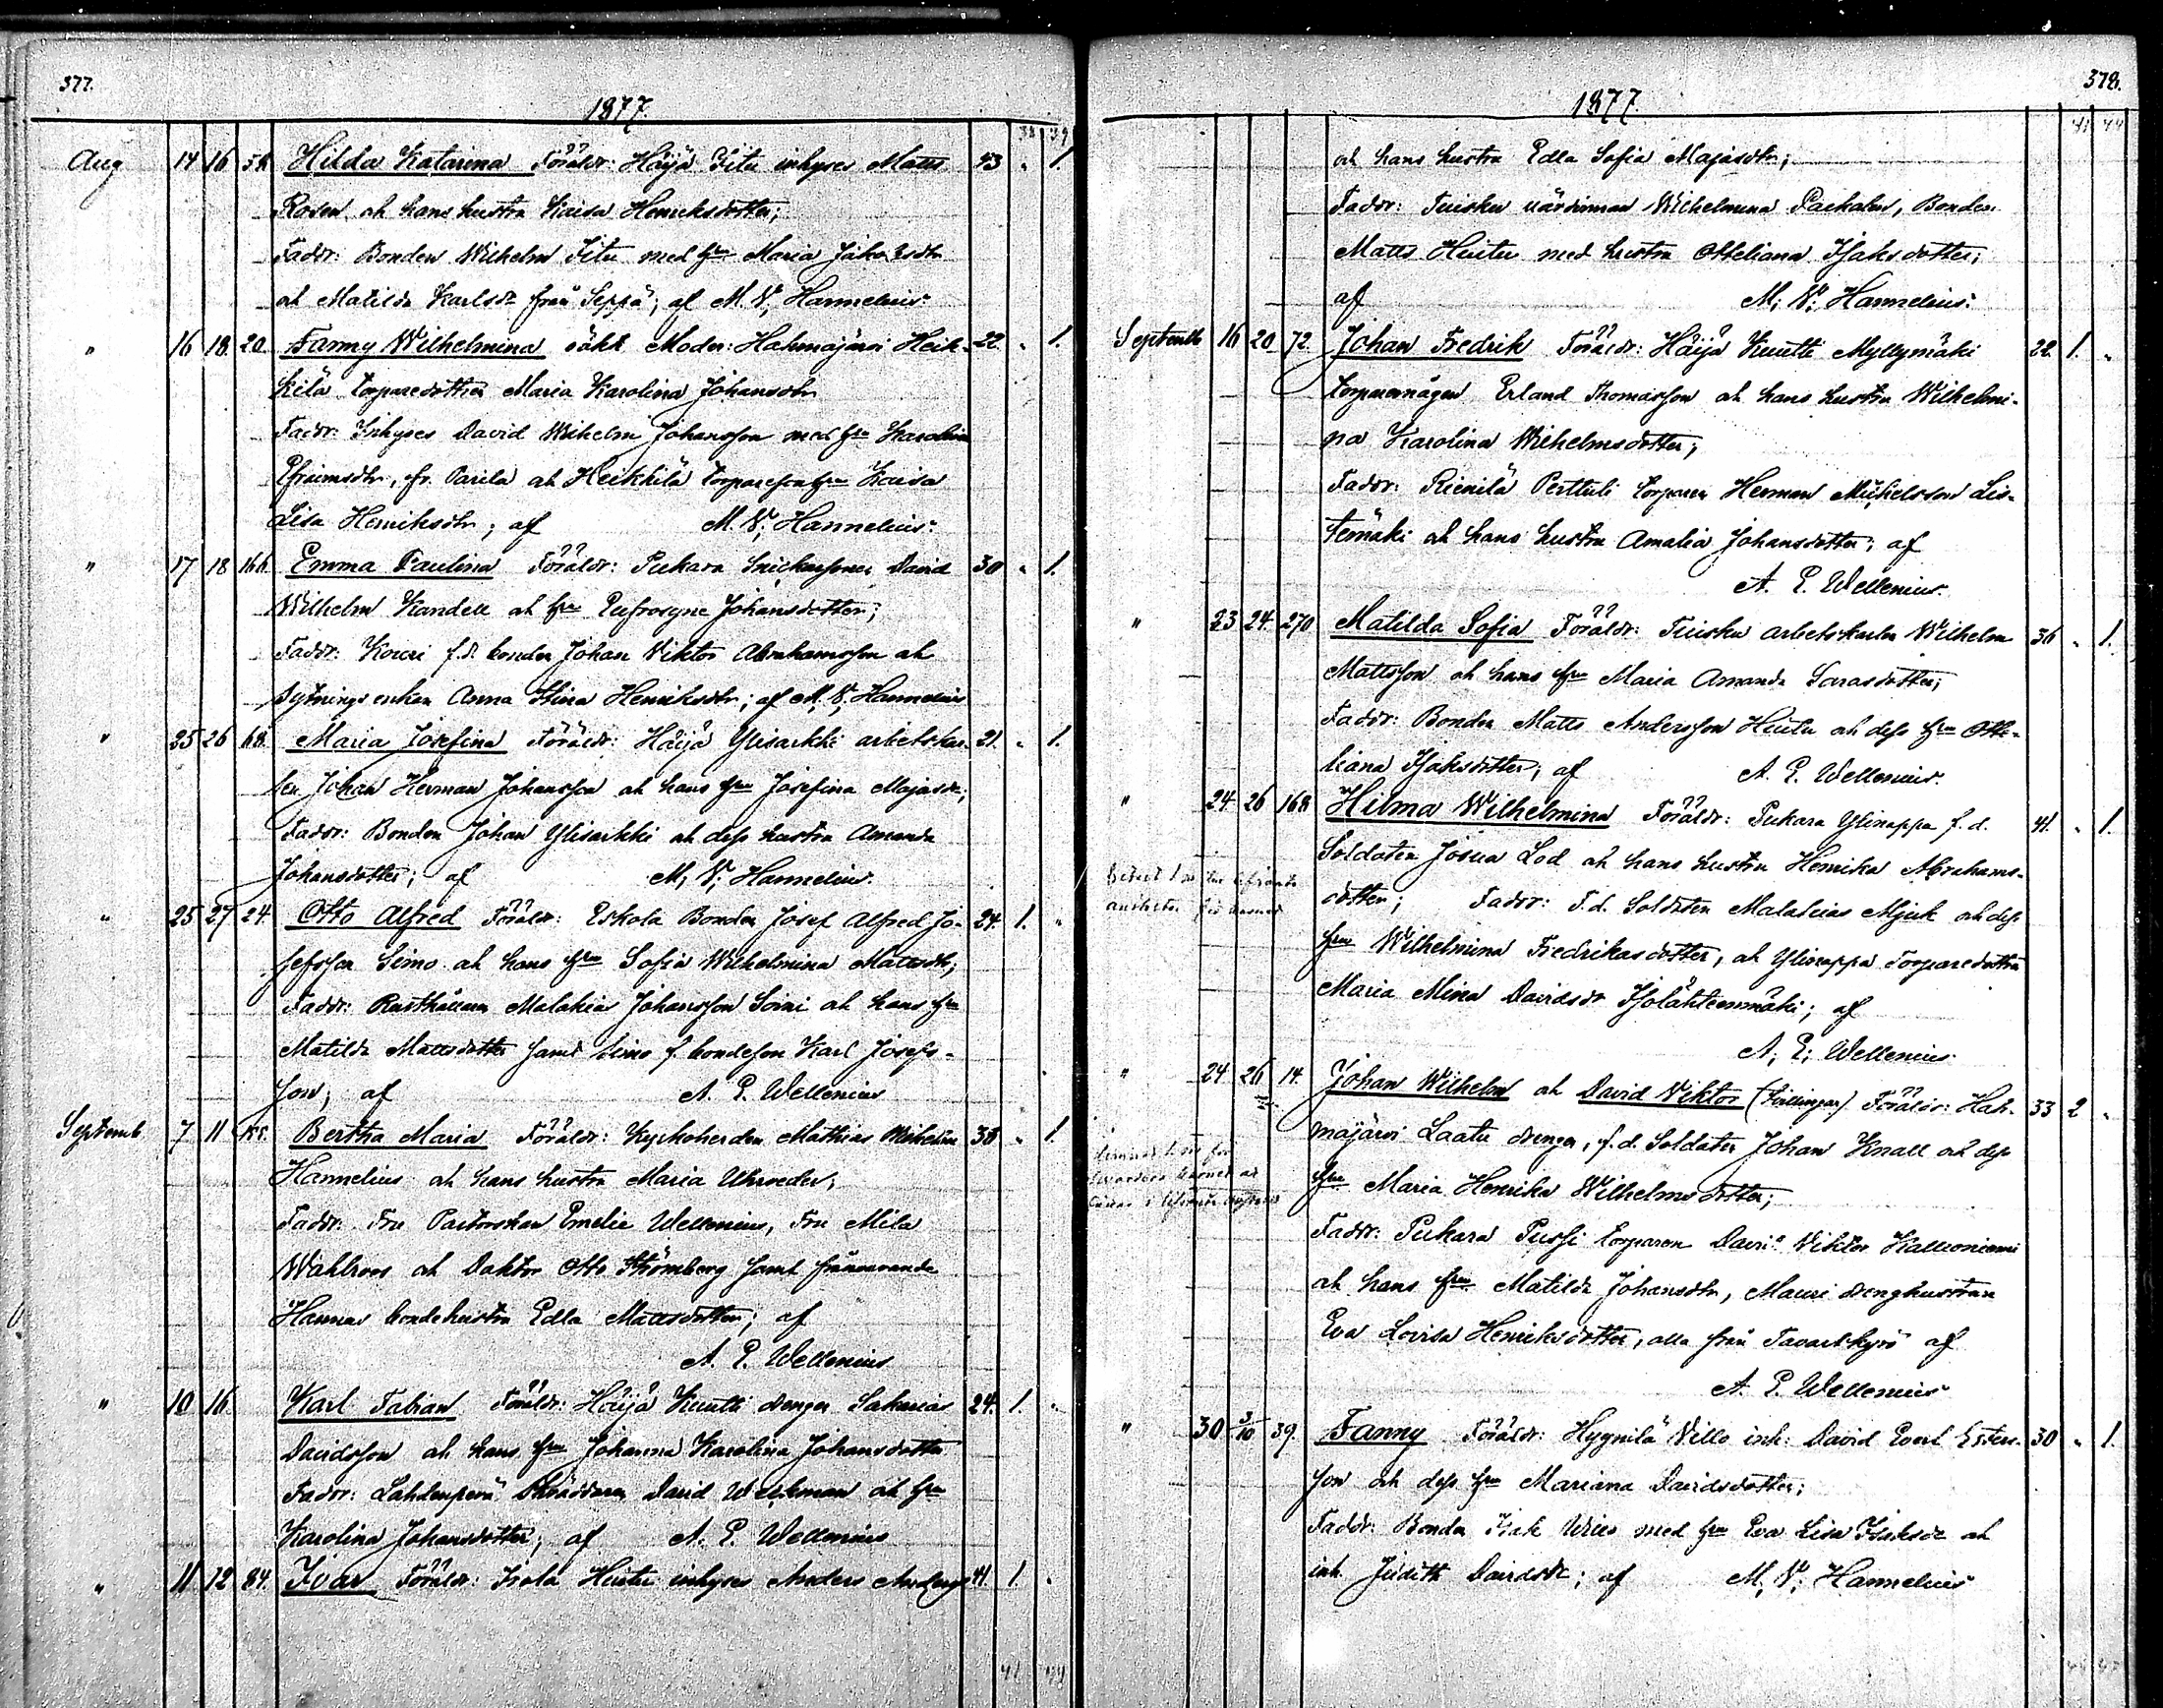 377.
1877.
Aug 14 16 58. Hilda Katarina Föräldr: Häijä Fitu inhyses Matts 43 " 1.
Rosen och hans hustru Kaisa Henriksdotter;
Faddr: Bonden Wilhelm Fitu med hru Maria Jakobsdtr
och Matilda Karlsdr från Seppä; af M. V. Hannelius.
" 16 18. 20. Fanny Wilhelmina oäkt Moder: Hahmajärvi Heik- 22. " 1.
kilä torparedotter Maria Karolina Johansdtr
Faddr: Inhyses David Wilhelm Johansson med hru Karolina
Efraimsdtr, fr. Parila och Heikkilä torparesonhru Kaisa
Lisa Henriksdtr; af M. V. Hannelius.
" 17 18 166. Emma Paulina Föräldr: Pukara Snickarsonen David 30 " 1.
Wilhelm Kandell och hru Eufrosyne Johansdotter;
Faddr: Kouri f.d. bonden Johan Viktor Abrahamsson och
sytnings enkan Anna Stina Henriksdtr; af M. V. Hannelius
" 25 26 68. Maria Josefina Föräldr: Häijä Ylisarkki arbetskar- 21. " 1.
len Johan Herman Johansson och hans hru Josefina Majasdr;
Faddr: Bonden Johan Ylisarkki och dess hustru Amanda
Johansdotter; af M. V. Hannelius.
" 25 27 24. Otto Alfred Föräldr: Eskola Bonden Josef Alfred Jo- 24. 1. "
sefsson Simo och hans hru Sofia Wilhelmina Mattsdtr;
Faddr: Rusthållaren Malakias Johansson Soini och hans hru
Matilda Mattsdotter samt Simo f. bondeson Karl Josefs-
son; af A. E. Wellenius
Septemb. 7 11 Bertha Maria Föräldr: Kyrkoherden Mathias Wilhelm 38 " 1.
Hannelius och hans hustru Maria Uhrveder;
Faddr: Fru Pastorskan Emelie Wellenius, Fru Mila
Wahlroos och Doktor Otto Strömberg samt frånvarande
Hannas bondehustru Edla Mattsdotter; af
A. E. Wellenius
" 10 16. Karl Fabian Föräldr: Häijä Knutti drengen Sakarias 24. 1. "
Davidsson och hans hru Johanna Karolina Johansdotter
Faddr: Lahdenperä Skräddaren David Weckman och hru
Karolina Johansdotter; af A. E. Wellenius
" 11 12 84. Ivar Föräldr: Isola Huitu inhyses Anders Anderss 41. 1. "
378.
1877.
och hans hustru Edla Sofia Majasdtr;
Faddr: Tuisku värdinnan Wilhelmina Packalen, Bonden
Matts Huitu med hustru Otteliana Isaksdotter;
af M. V. Hannelius.
Septemb 16 20 72. Johan Fredrik Föräldr: Häijä Knutti Myllymäki 22. 1. "
torparemågen Erland Thomasson och hans hustru Wilhelmi-
na Karolina Wilhelmsdotter;
Faddr: Rienilä Perttuli torparen Herman Mickelsson Lis-
temäki och hans hustru Amalia Johansdotter; af
A. E. Wellenius.
" 23 24 270 Matilda Sofia Föräldr: Tuisku arbetskarlen Wilhelm 36 " 1.
Mattsson och hans hru Maria Amanda Sarasdotter;
Faddr: Bonden Matts Andersson Huitu och dess hru Otte-
liana Isaksdotter; af A. E. Wellenius.
" 24 26 168 Hilma Wilhelmina Föräldr: Pukara Ylinappa f.d. 41. " 1.
Soldaten Josua Lod och hans hustru Henrika Abrahams-
dotter; Faddr: F.d. Soldaten Malakias Mjuk och dess
hru Wilhelmina Fredrikasdotter, och Ylinappa Torparedottren
Maria Mina Davidsdr Isolähteenmäki; af
A. E. Wellenius
" 24 26 14. Johan Wilhelm och David Viktor (tvillingar) Föräldr: Hah- 33 2 "
majärvi Laatu drengen, f.d. Soldaten Johan Knall och dess
hru Maria Henrika Wilhelmsdotter;
Faddr: Pukara Pussi torparen David Viktor Kallioniemi
och hans hru Matilda Johansdtr, Mauri drenghustrun
Eva Lovisa Henriksdotter, alla från Tavastkyro af
A. E. Wellenius
" 30 3/10 39. Fanny Föräldr: Hygnilä Villo inh. David Evert Esters- 30 " 1.
son och dess hru Mariana Davidsdotter;
Faddr: Bonden Isak Uries med hru Eva Lisa Isaksdr och
inh. Judith Davidsdr; af M. V. Hannelius